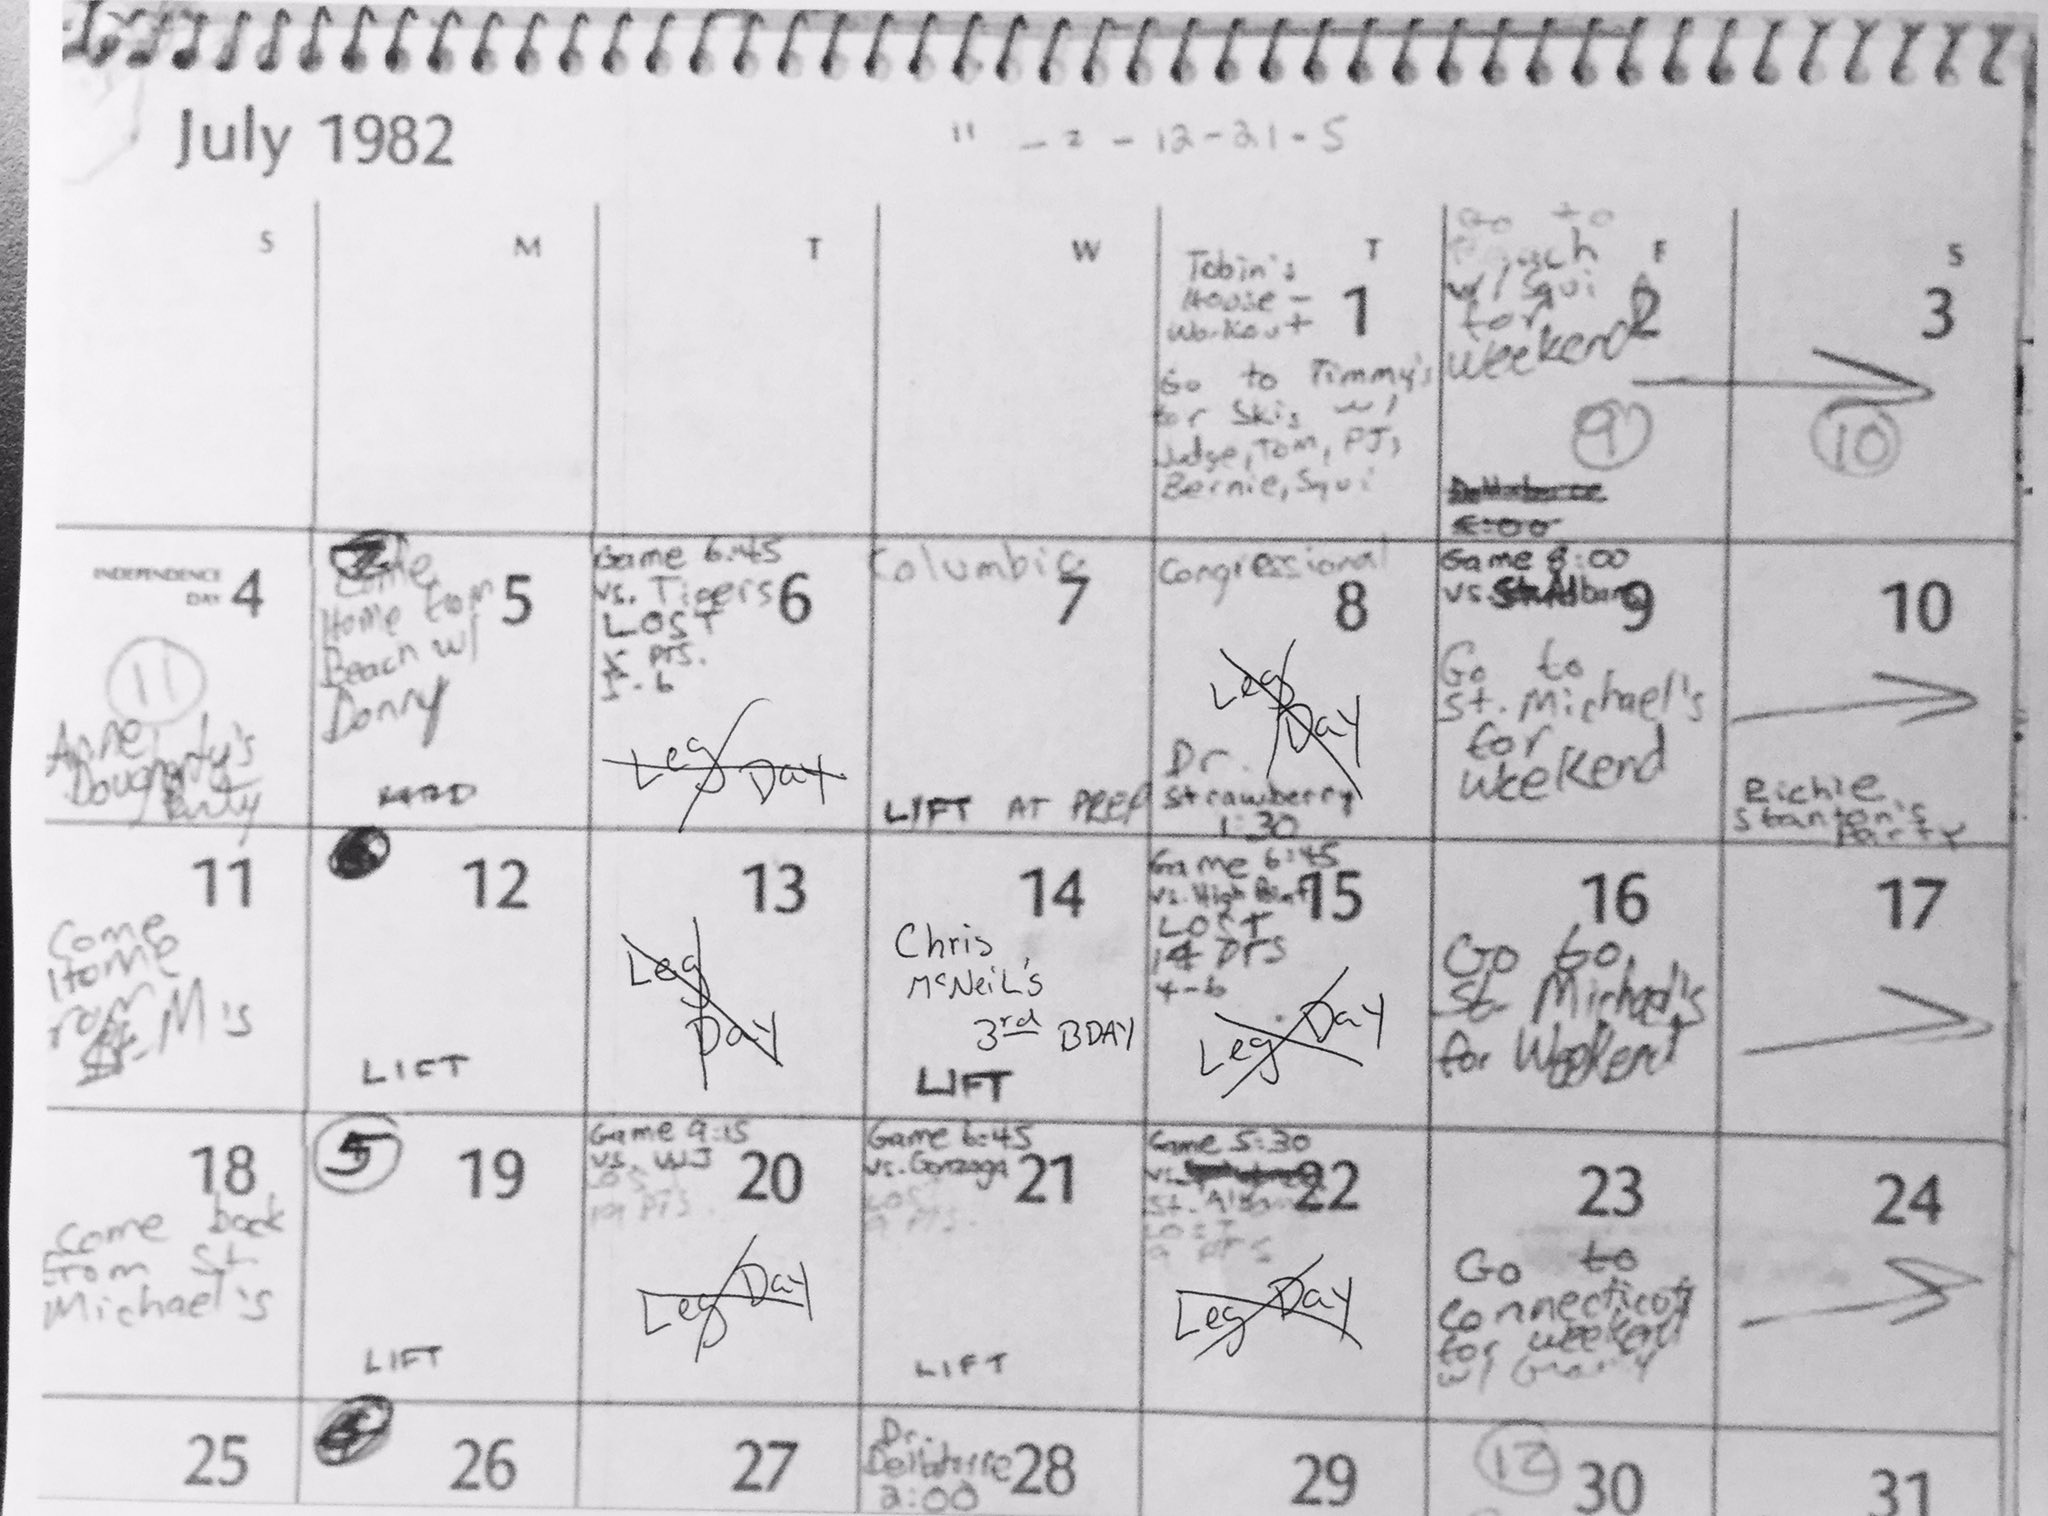 July 1982
" - 2 - 12-21-5
S M T W T F S
Tobin's
House -
Workout
1
Go to Timmy's
for Skis w/
Judge, Tom, PJ,
Bernie, Squi
Go to
Beach
w/ Squi
for
Weekend
2
9
3
10
INDEPENDENCE
DAY
4
11
Anne
Dougherty's
Party
Come
Home from
Beach w/
Donny
5
Game 6:45
vs. Tigers
LOST
PTS.
5-6
6
Leg Day
Columbia
7
LIFT AT PREP
Congressional
8
Leg
Day
Dr.
Strawberry
1:30
Game 8:00
vs. St. Albans
9
Go to
St. Michael's
for
Weekend
10
Richie
Stanton's
Party
11
Come
Home
from
St. M's
12
LIFT
13
Leg
Day
14
Chris
McNeil's
3rd BDAY
LIFT
Game 6:45
vs. High Point
LOST
14 PTS
4-6
15
Leg Day
16
Go to
St. Michael's
for Weekend
17
18
Come back
from St.
Michael's
5
19
LIFT
Game 9:15
vs. WJ
LOST
19 PTS.
20
Leg Day
Game 6:45
vs. Gonzaga
LOST
9 PTS.
21
LIFT
Game 5:30
vs.
St. Albans
LOST
9 PTS
22
Leg Day
23
Go to
Connecticut
for weekend
w/
24
25
26
27
Dr.
2:00
28
29
12
30
31